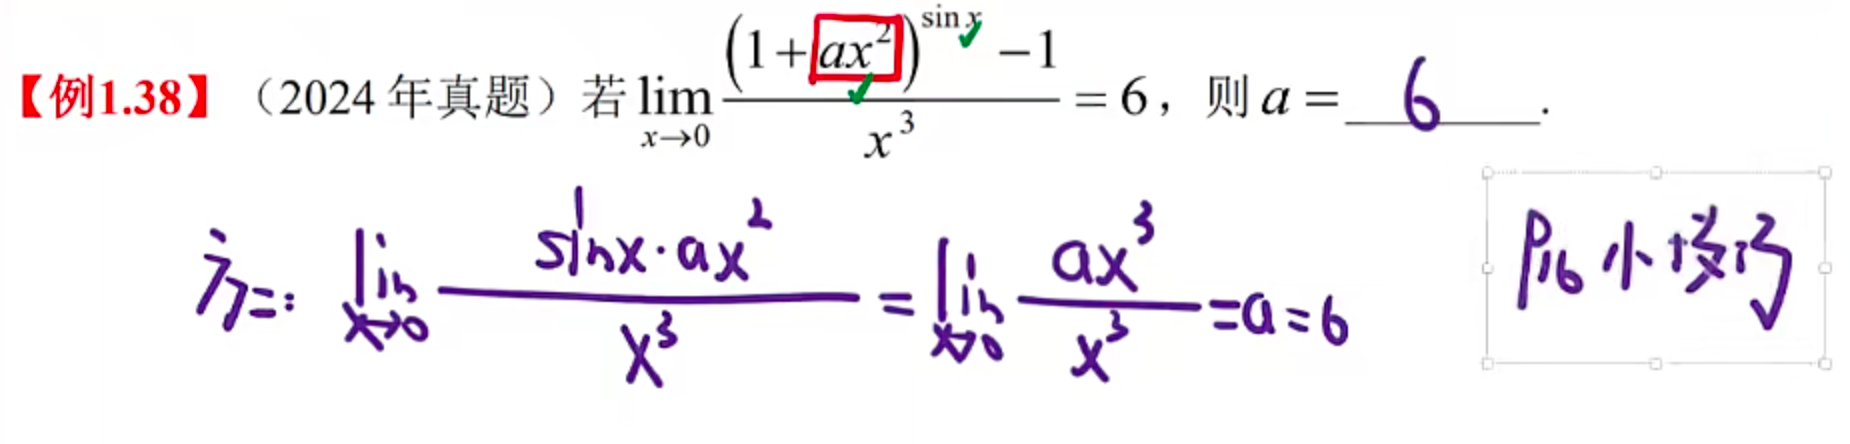 【例1.38】（2024年真题）若 lim_{x→0} ((1+ax²)^{sin x} −1)/x³ = 6，则 a = 6 .
法二: lim_{x→0} (sinx·ax²)/x³ = lim_{x→0} ax³/x³ = a = 6
P16 小技巧